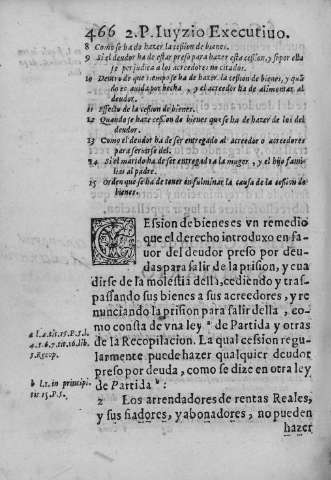 466 2. P. Iuyzio Executiuo.
8 Como se ha de hazer la cession de bienes.
9 Si el deudor ha de estar preso para hazer esta cession, y si por ella
se perjudica a los acreedores no citados.
10 Dentro de que tiempo se ha de hazer la cession de bienes, y quãdo
es auida por hecha, y el acreedor ha de alimentar al
deudor.
11 Effecto de la cession de bienes.
12 Quando se haze cession de bienes que se ha de hazer de los del
deudor.
13 Como el deudor ha de ser entregado al acreedor o acreedores
para seruirse del.
14 Si el marido ha de ser entregado a la muger, y el hijo familias
al padre.
15 Orden que se ha de tener en fulminar la causa de la cession de
bienes.
CEssion de bienes es vn remedio
que el derecho introduxo en fa
uor del deudor preso por deu
das para salir de la prision, y eua
dirse de la molestia della, cediendo y tras
passando sus bienes a sus acreedores, y re
nunciando la prision para salir della, co
mo consta de vna ley a de Partida y otras
de la Recopilacion. La qual cession regu
larmente puede hazer qualquier deudor
preso por deuda, como se dize en otra ley
de Partida b:
2 Los arrendadores de rentas Reales,
y sus fiadores, y abonadores, no pueden
hazer
a l. 4. tit. 15. P. 5. l.
4. 5. 6. 7. tit. 16. lib.
5. Recop.
b l. 1. in principi.
tit. 15. P. 5.